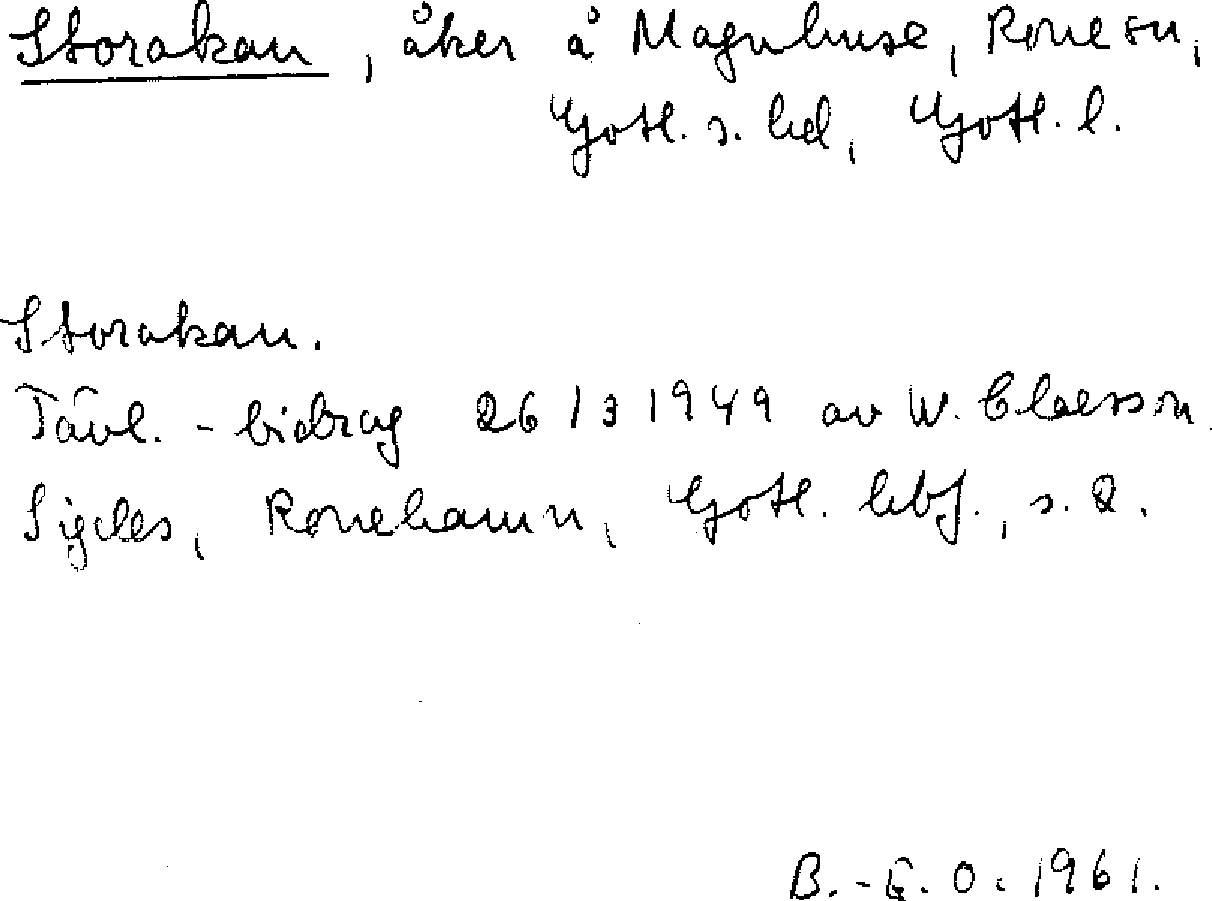 Storakau, åker å Magnhuse, Rone sn,
Gotl. s. hd, Gotl. l.
Storakau.
Tävl.-bidrag 26/3 1949 av W. Claesson.
Sigdes, Ronehamn, Gotl. hbf., s. 2.
B.-G. O. 1961.